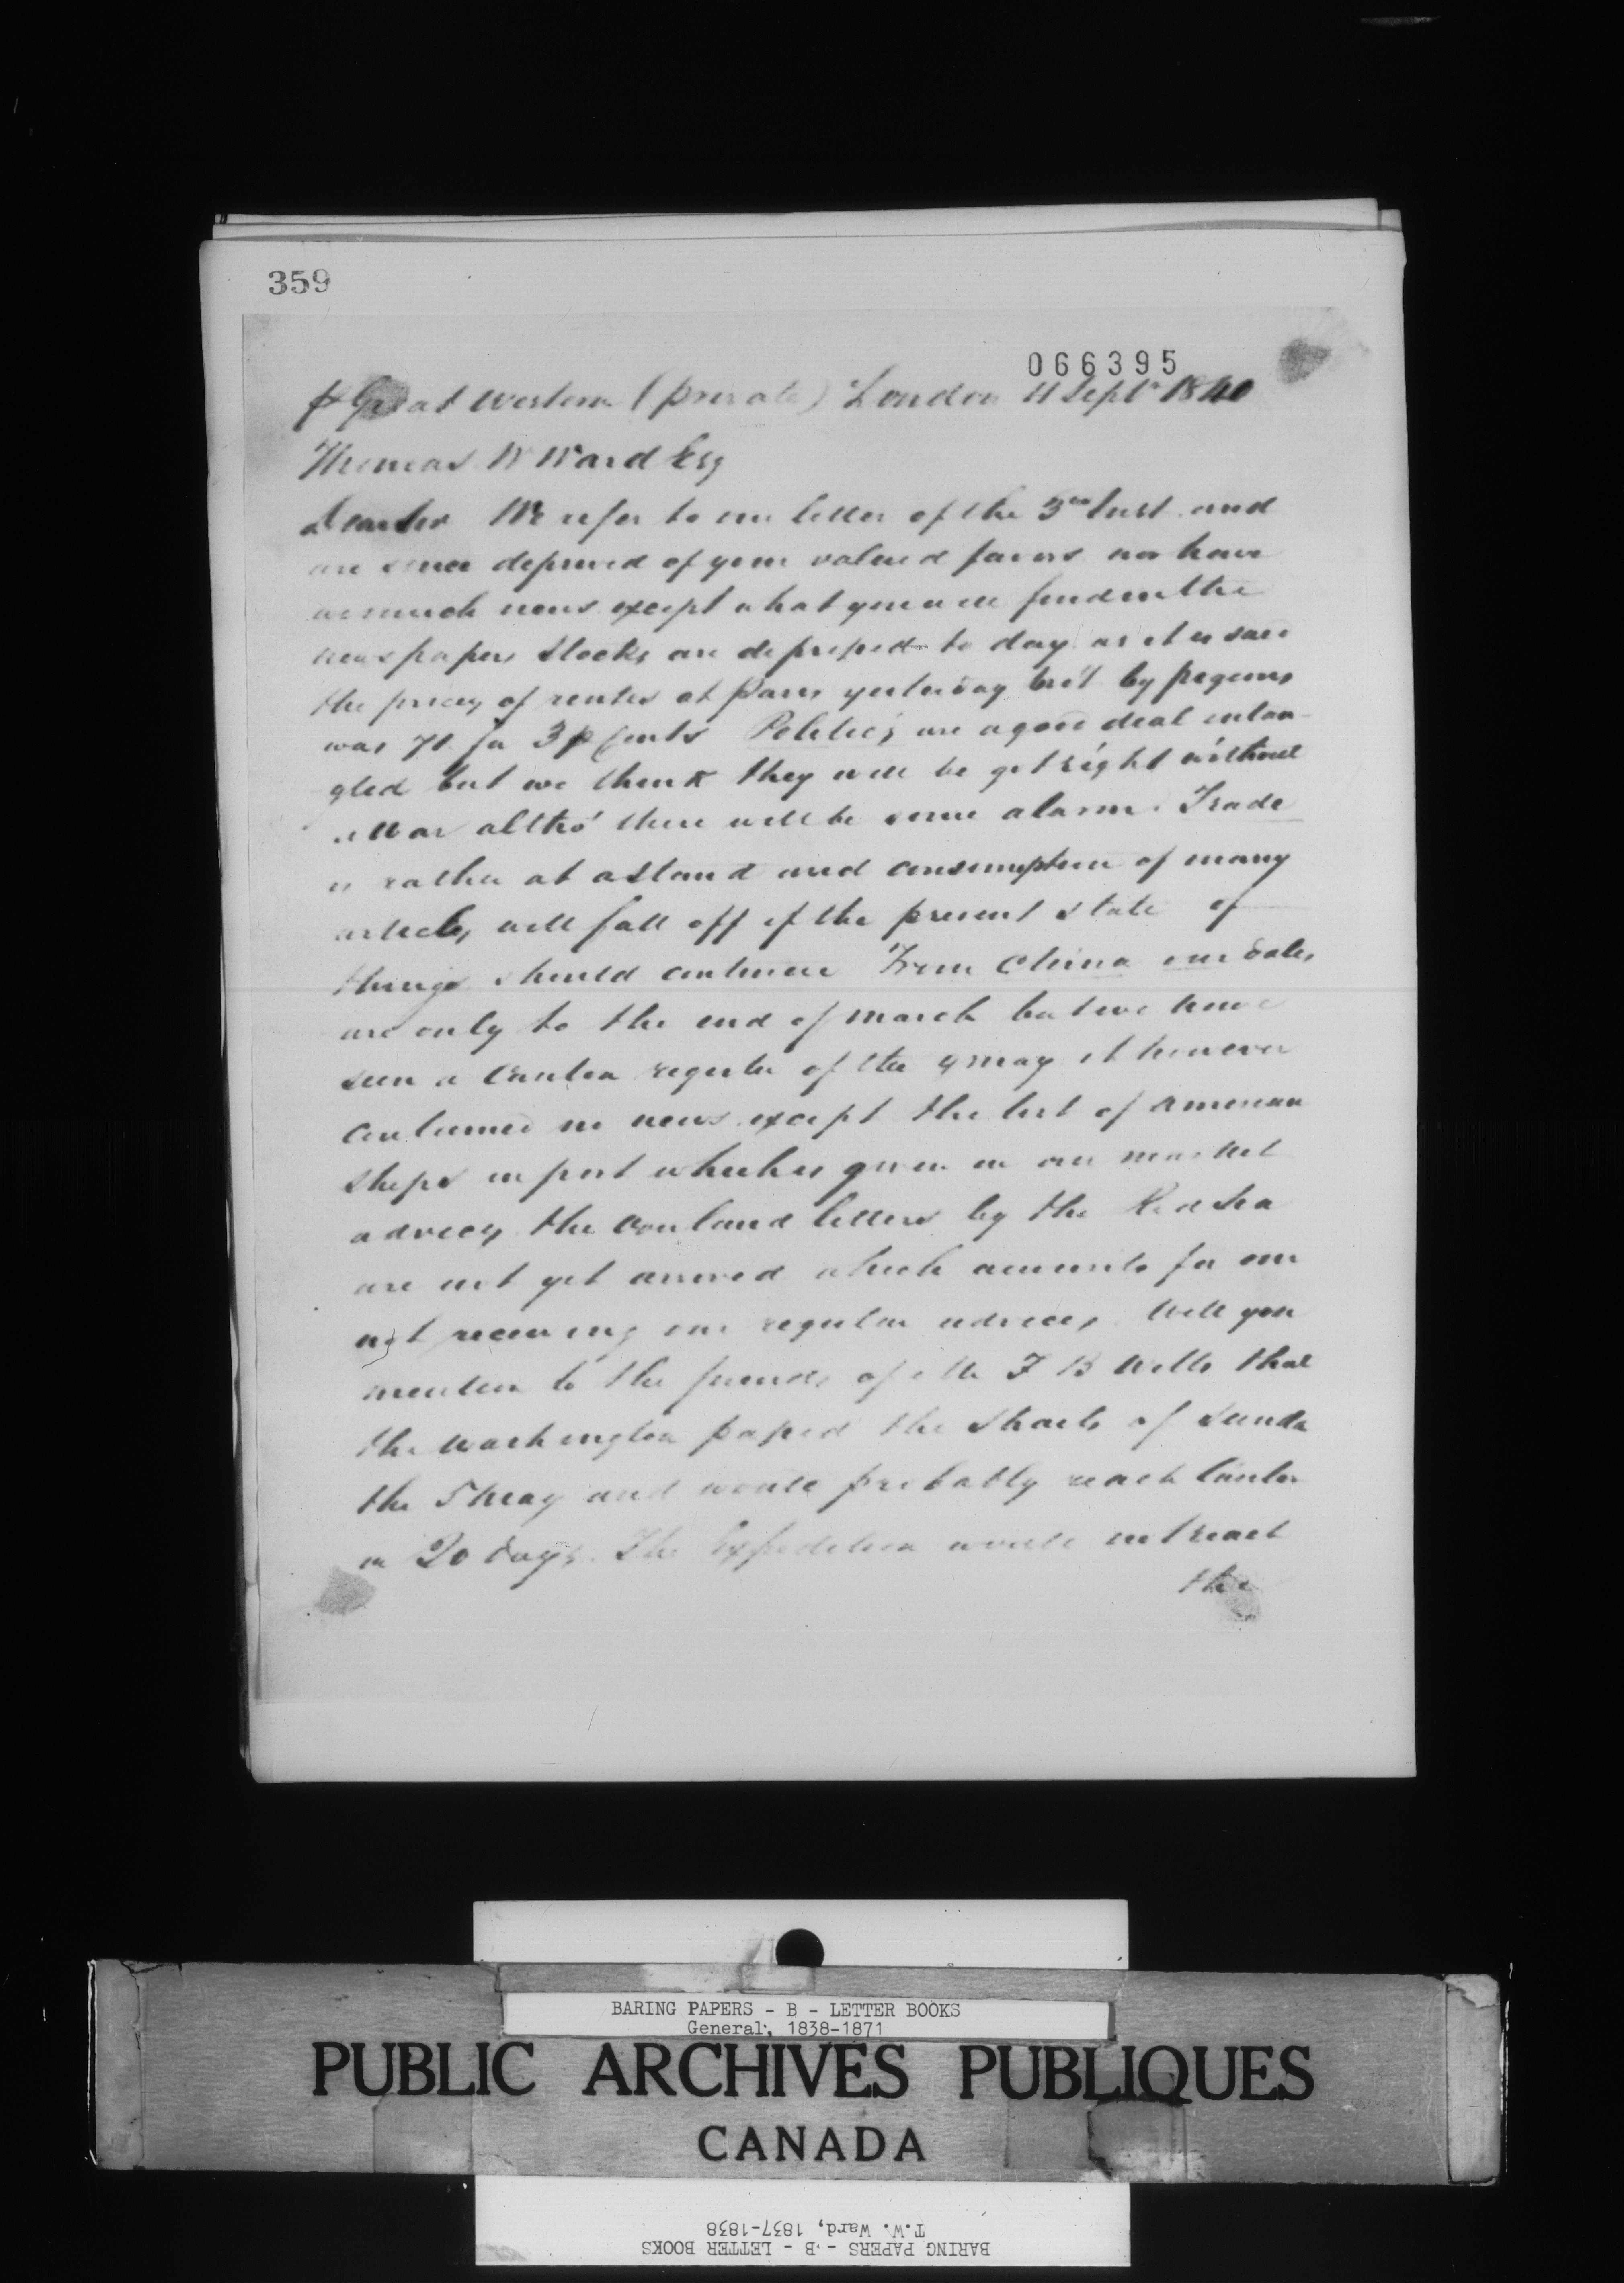 359
066395
p Great Western (private) London 11 Septr 1840
Thomas W Ward Esq
Dear Sir We refer to our letter of the 3rd Inst and
are since deprived of your valued favors nor have
we much news except what you will find in the
newspapers Stocks are depressed to day as it is said
the prices of rentes at Paris yesterday bro't by pigeons
was 71 for 3 p Cents Politics are a good deal entan-
gled but we think they will be got right without
a War altho' there will be some alarm. Trade
is rather at a stand and consumption of many
articles will fall off if the present state of
things should continue From China our dates
are only to the end of March but we have
seen a Canton register of the 9 May it however
contained no news except the list of American
ships in port which is given in our market
advices the Overland letters by the Red Sea
are not yet arrived which accounts for our
not receiving our regular advices. Will you
mention to the friends of Mr F B Wells that
the Washington passed the Straits of Sunda
the 5 May and would probably reach Canton
in 20 days. The Expedition would not reach
the
BARING PAPERS - B - LETTER BOOKS
General, 1838-1871
PUBLIC ARCHIVES PUBLIQUES
CANADA
T.W. Ward, 1837-1838
BARING PAPERS - B - LETTER BOOKS